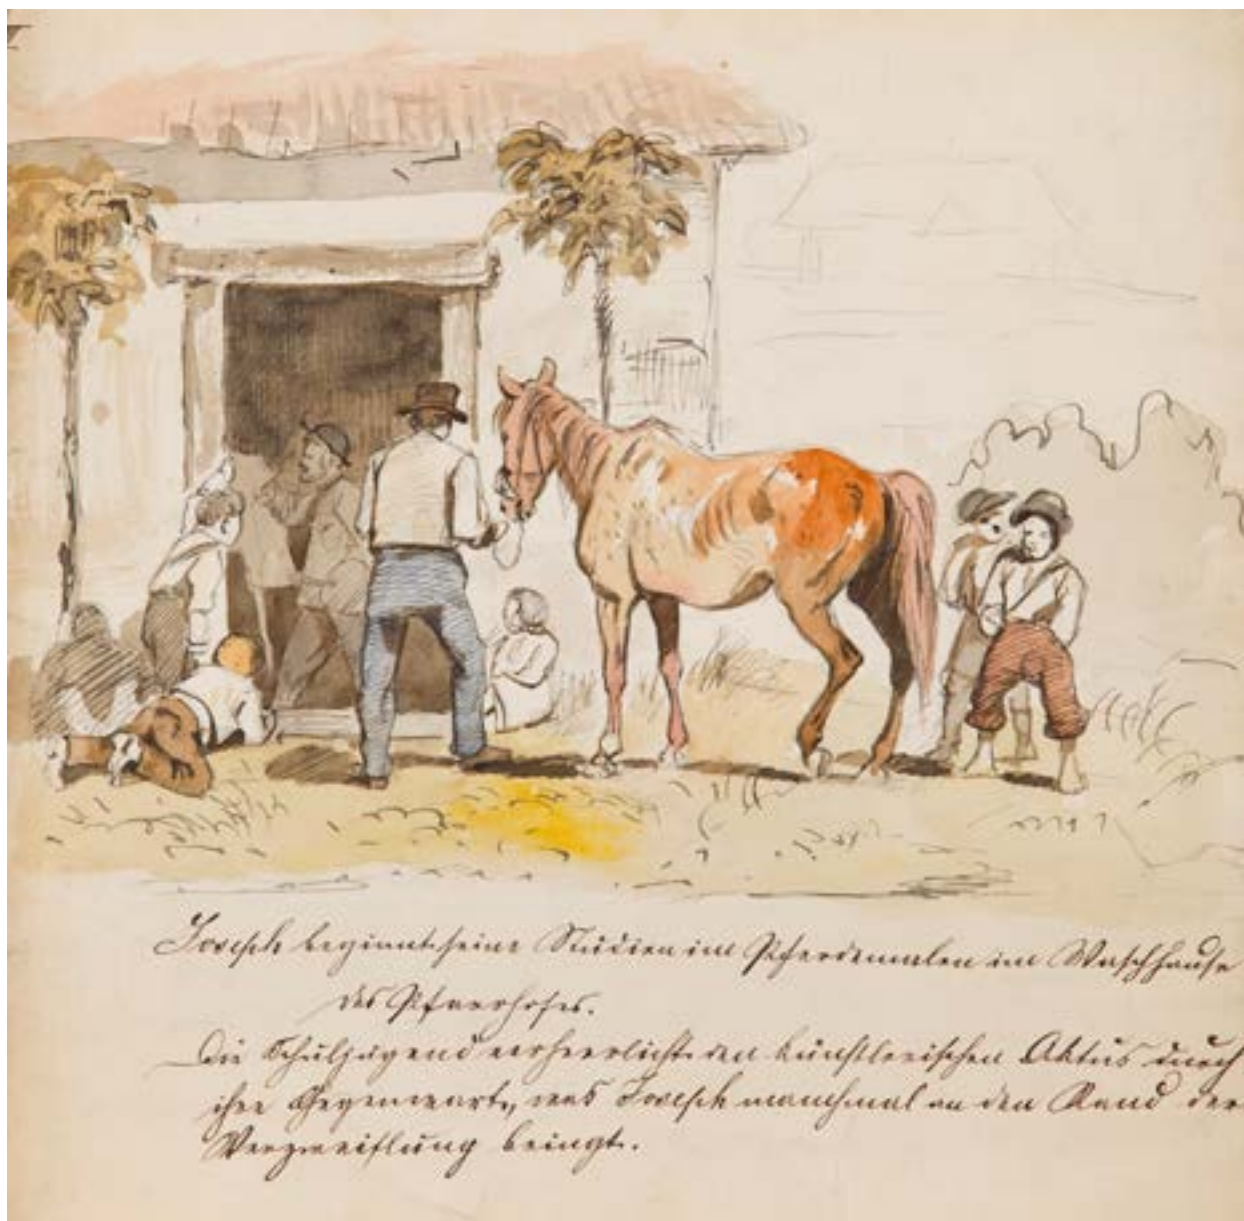 beginnt seine Studien im Pferdemalen im Waschhause
des Pfarrhofes.
Die Schuljugend verherrlicht den künstlerischen Aktus durch
ihre Gegenwart, was manchmal an den Rand der
Verzweiflung bringt.